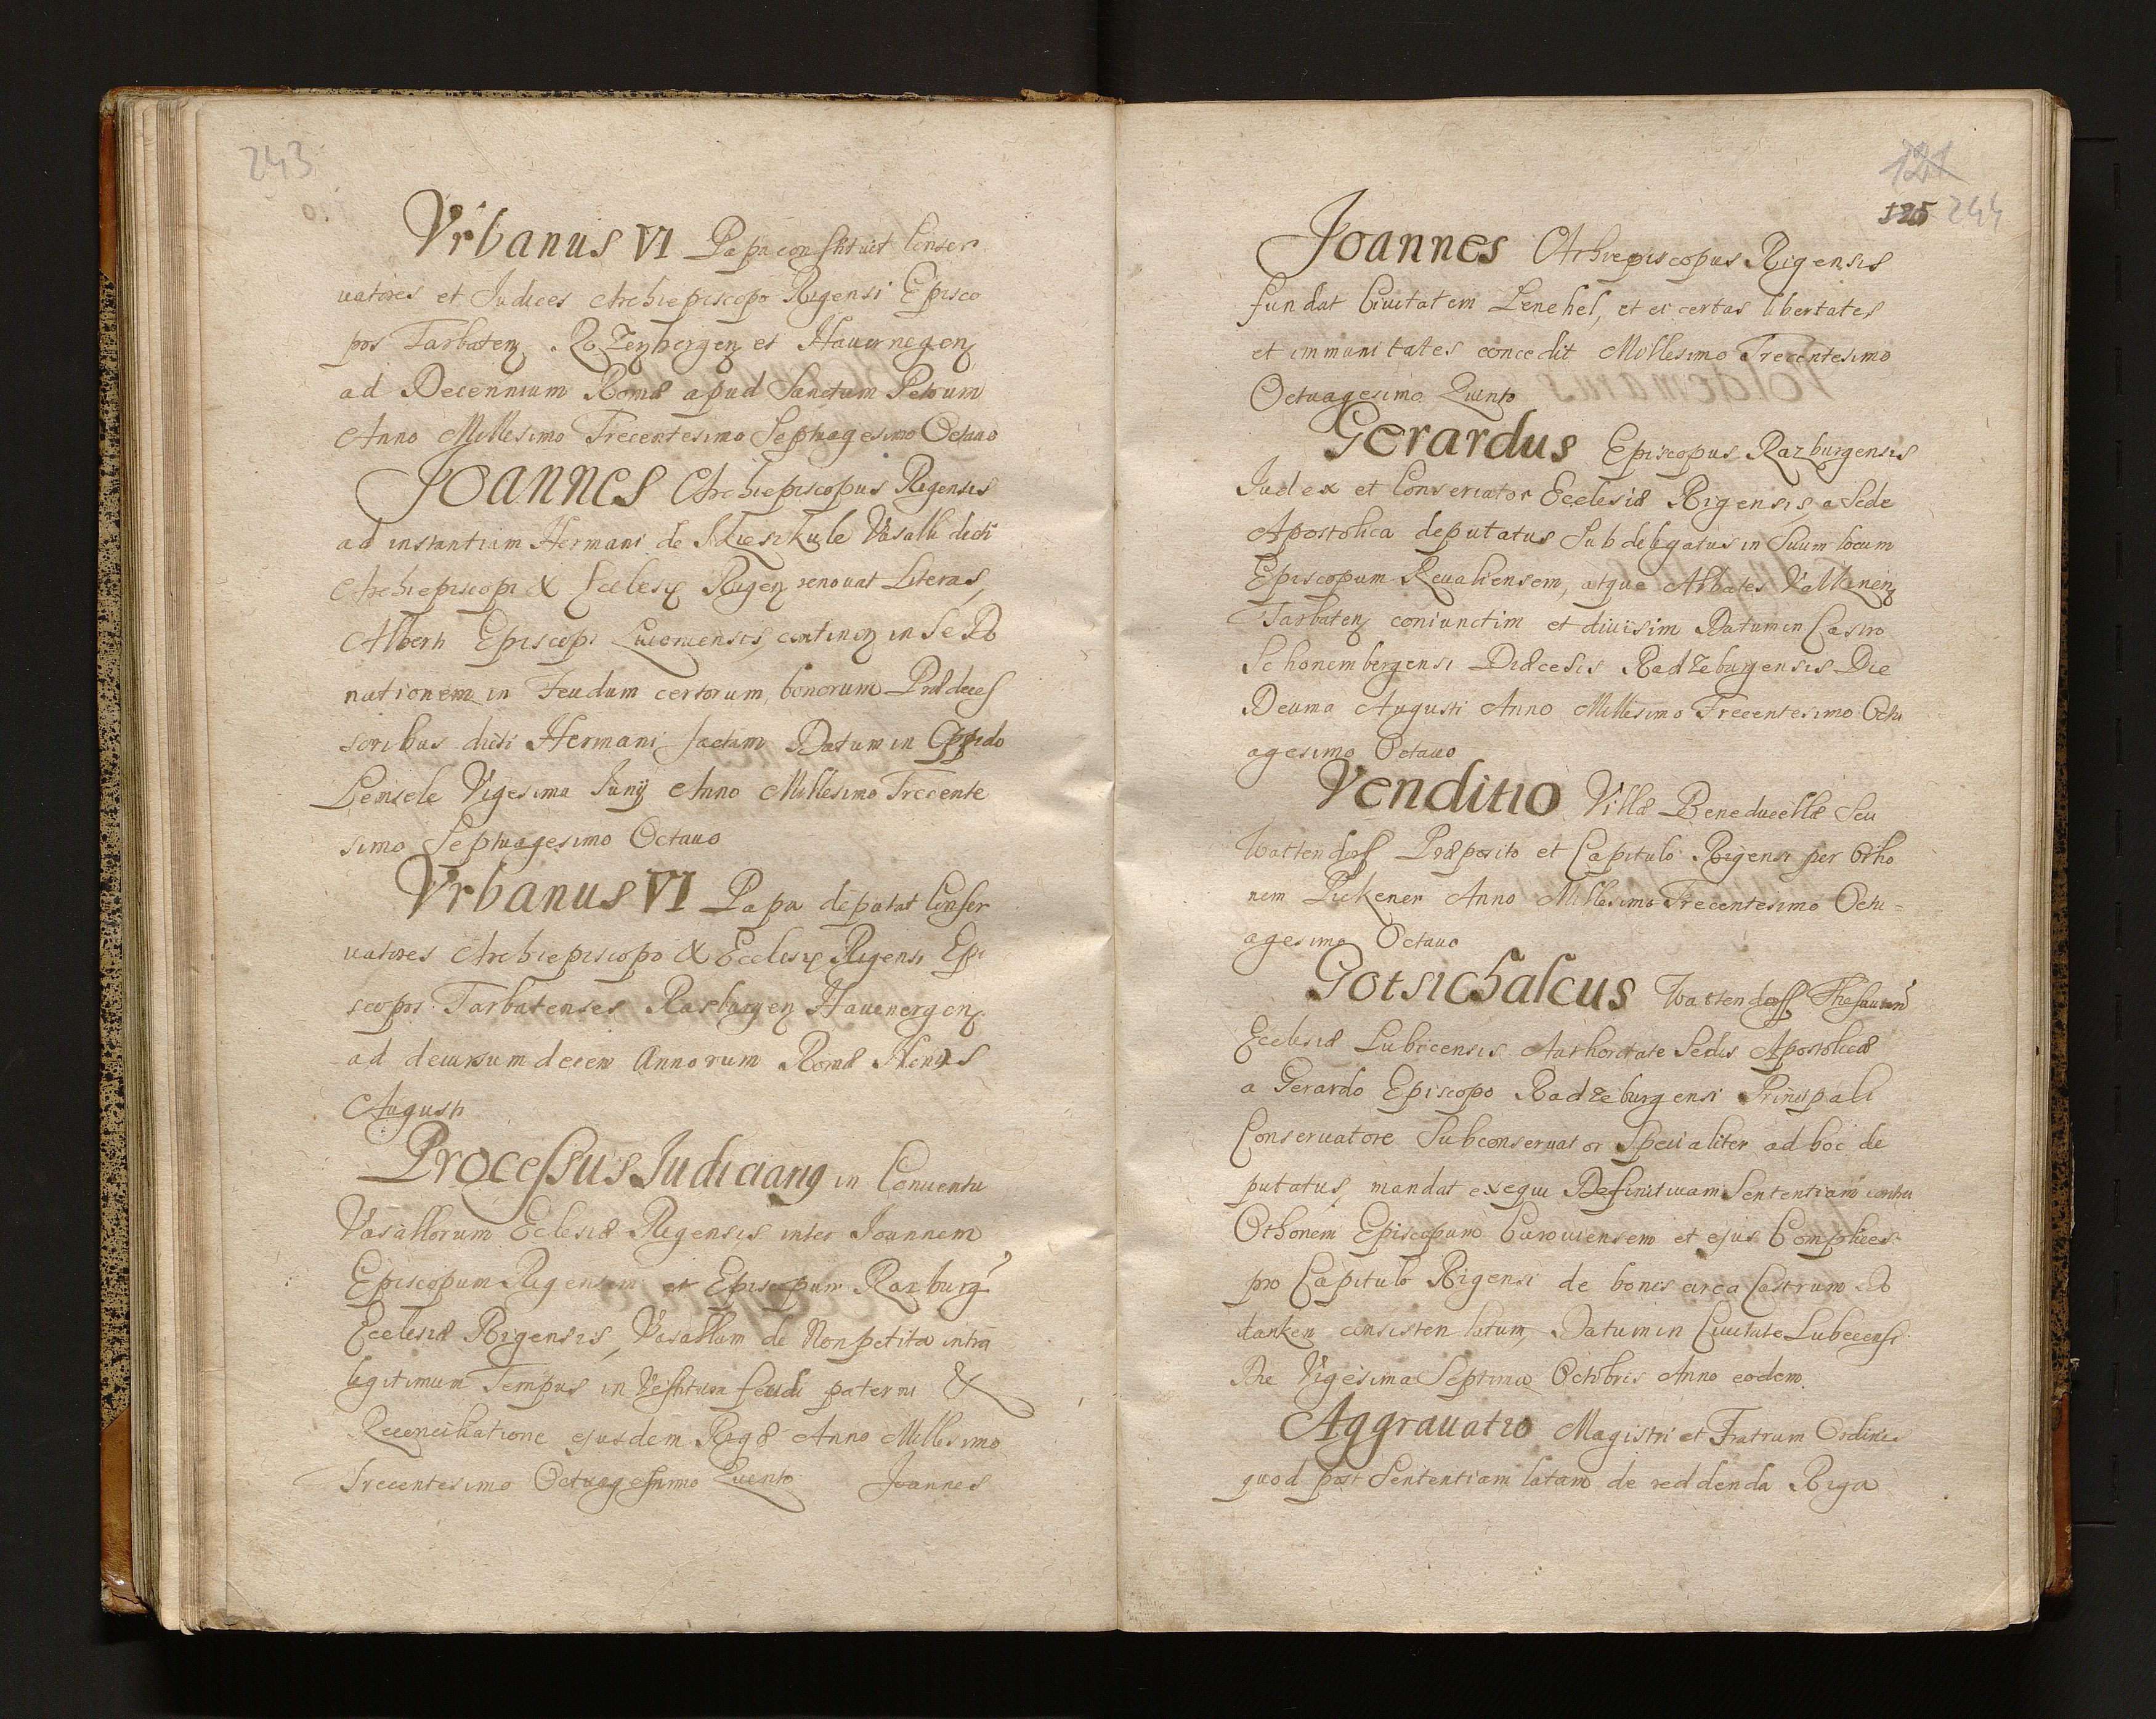 243
Vrbanus VI Papa constituit Conser
uatores et Judices Archiepiscopo Rigensi Episco
pos Tarbaten Razenbergen et Hauernegen
ad Decennium Romæ apud Sanctum Petrum
Anno Millesimo Trecentesimo Septuagesimo Octauo
Joannes Archiepiscopus Rigensis
ad instantiam Hermani de Vasalli dicti
Archiepiscopi & Ecclesię Rigen renouat Literas,
Alberti Episcopi continen in se Do
nationem in Feudum certorum bonorum Prædeces
soribus dicti Hermani factam Datum in Oppido
Lemsele Vigesima Junij Anno Millesimo Trecente
simo Septuagesimo Octauo
Vrbanus VI Papa deputat Conser
uatores Archiepiscopo & Ecclesię Rigensi Epi
scopos Tarbatenses Rasburgen Hauenergen
ad decursum decem Annorum Romæ
Augusti
Processus Iudiciarius in Conuentu
Vasallorum Eclesiæ Rigensis inter Joannem
Episcopum Rigensem et Episcopum Razburg
Ecclesiæ Rigensis, Vasallum de Non petita intra
legitimum Tempus in Vestitura feudi paterni &
Reconciliatione ejusdem Rigæ Anno Millesimo
Trecentesimo Octuagesimo Quinto Joannes
121
125 244
Joannes Archiepiscopus Rigensis
fundat Ciuitatem Lenehel, et ei certas libertates
et immunitates concedit Millesimo Trecentesimo
Octuagesimo Quinto
Gerardus Episcopus Razburgensis
Judex et Conseruator Ecclesiæ Rigensis a Sede
Apostolica deputatus Subdelegatus in Suum locum
Episcopum Reualiensem, atque Abbates Vallenen
Tarbaten coniunctim et diuisim Datum in Castro
Schonembergensi Diæcesis Radzeburgensis Die
Decima Augusti Anno Millesimo Trecentesimo Octu
agesimo Octauo
Venditio Villæ Beneducellæ Seu
Wattendorf Præposito et Capitulo Rigensi per Otho
nem Pickener Anno Millesimo Trecentesimo Octu=
agesimo Octauo
Gotsichalcus Wattendorff
Ecclesiæ Lubicensis Authoritate Sedis Apostolicæ
a Gerardo Episcopo Radzeburgensi Principali
Conseruatore Subconseruator Specialiter ad hoc de
putatus, mandat exequi Definitiuam Sententiam contra
Othonem Episcopum Curoniensem et ejus Complices
pro Capitulo Rigensi de bonis circa Castrum Do
danken consisten latum, Datum in Ciuitate Lubecensi
Die Vigesima Septima Octobris Anno eodem
Aggrauatio Magistri et Fratrum Ordinis
quod post Sententiam latam de reddenda Riga